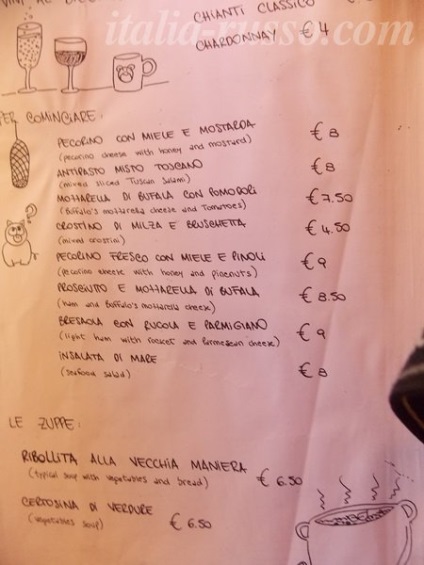 italia-russo.com
CHIANTI CLASSICO
CHARDONNAY € 4
PER COMINCIARE:
PECORINO CON MIELE E MOSTARDA € 8
(pecorino cheese with honey and mustard)
ANTIPASTO MISTO TOSCANO € 8
(mixed sliced Tuscan salami)
MOZZARELLA DI BUFALA CON POMODORI € 7.50
(Buffalo's mozzarella cheese and Tomatoes)
CROSTINO DI MILZA E BRUSCHETTA € 4.50
(mixed crostini)
PECORINO FRESCO CON MIELE E PINOLI € 9
(pecorino cheese with honey and pinenuts)
PROSCIUTO E MOZZARELLA DI BUFALA € 8.50
(ham and Buffalo's mozzarella cheese)
BRESAOLA CON RUCOLA E PARMIGIANO € 9
(light ham with rocket and parmesan cheese)
INSALATA DI MARE € 8
(seafood salad)
LE ZUPPE:
RIBOLLITA ALLA VECCHIA MANIERA € 6.50
(typical soup with vegetables and bread)
CERTOSINA DI VERDURE € 6.50
(vegetables soup)